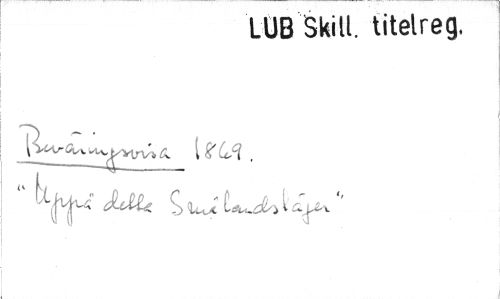 LUB Skill. titelreg.
Beväringsvisa 1869.
"Uppå detta Smålandsläger"